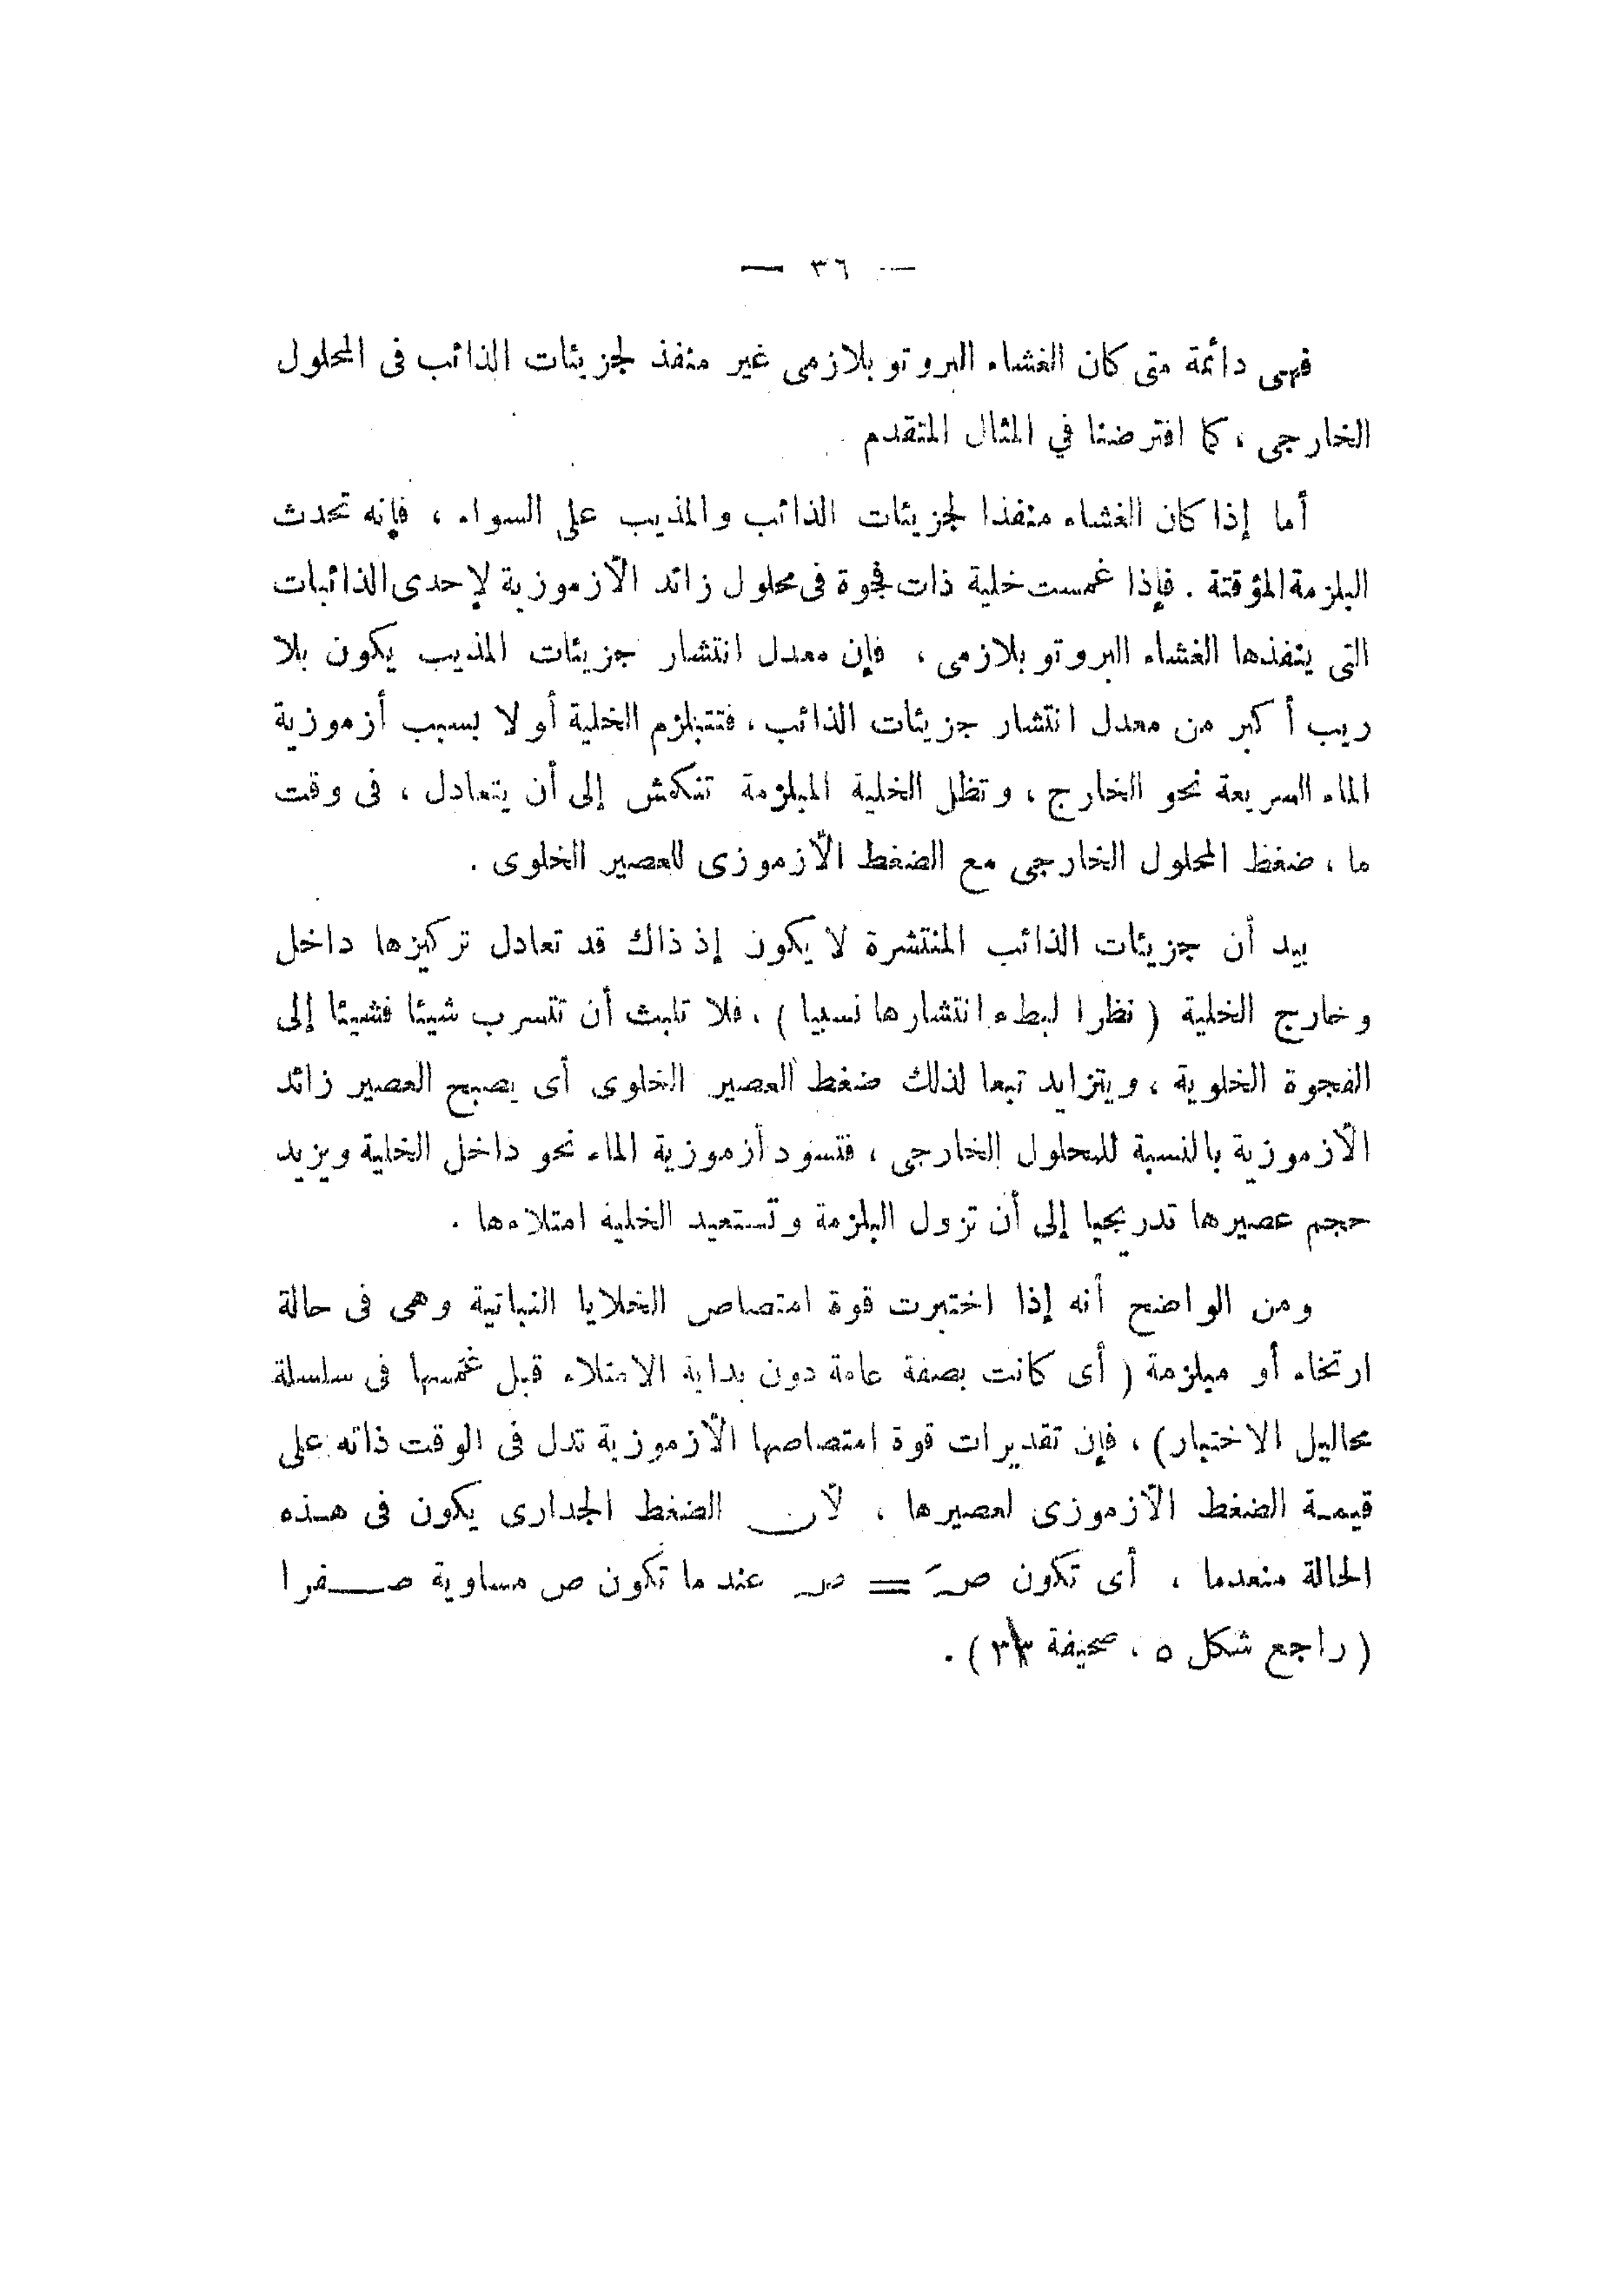 — ٣٦ —
فهى دائمة متى كان الغشاء البروتوبلازمى غير منفذ لجزيئات الذائب فى المحلول
الخارجى ، كما افترضنا في المثال المتقدم .
أما إذا كان الغشاء منفذا لجزيئات الذائب والمذيب على السواء ، فإنه تحدث
البلزمة المؤقتة . فإذا غمست خلية ذات فجوة فى محلول زائد الأزموزية لإحدى الذائبات
التى ينفذها الغشاء البروتوبلازمى ، فإن معدل انتشار جزيئات المذيب يكون بلا
ريب أكبر من معدل انتشار جزيئات الذائب ، فتتبلزم الخلية أولا بسبب أزموزية
الماء السريعة نحو الخارج ، وتظل الخلية المبلزمة تنكمش إلى أن يتعادل ، فى وقت
ما ، ضغط المحلول الخارجى مع الضغط الأزموزى للعصير الخلوى .
بيد أن جزيئات الذائب المنتشرة لا يكون إذ ذاك قد تعادل تركيزها داخل
وخارج الخلية ( نظرا لبطء انتشارها نسبيا ) ، فلا تلبث أن تتسرب شيئا فشيئا إلى
الفجوة الخلوية ، ويتزايد تبعا لذلك ضغط العصير الخلوى أى يصبح العصير زائد
الأزموزية بالنسبة للمحلول الخارجى ، فتسود أزموزية الماء نحو داخل الخلية ويزيد
حجم عصيرها تدريجيا إلى أن تزول البلزمة وتستعيد الخلية امتلاءها .
ومن الواضح أنه إذا اختبرت قوة امتصاص الخلايا النباتية وهى فى حالة
ارتخاء أو مبلزمة ( أى كانت بصفة عامة دون بداية الامتلاء قبل غمسها فى سلسلة
محاليل الاختبار ) ، فإن تقديرات قوة امتصاصها الأزموزية تدل فى الوقت ذاته على
قيمة الضغط الأزموزى لعصيرها ، لأن الضغط الجدارى يكون فى هذه
الحالة منعدما ، أى تكون صَ = صـ عندما تكون ص مساوية صفرا
( راجع شكل ٥ ، صحيفة ) .